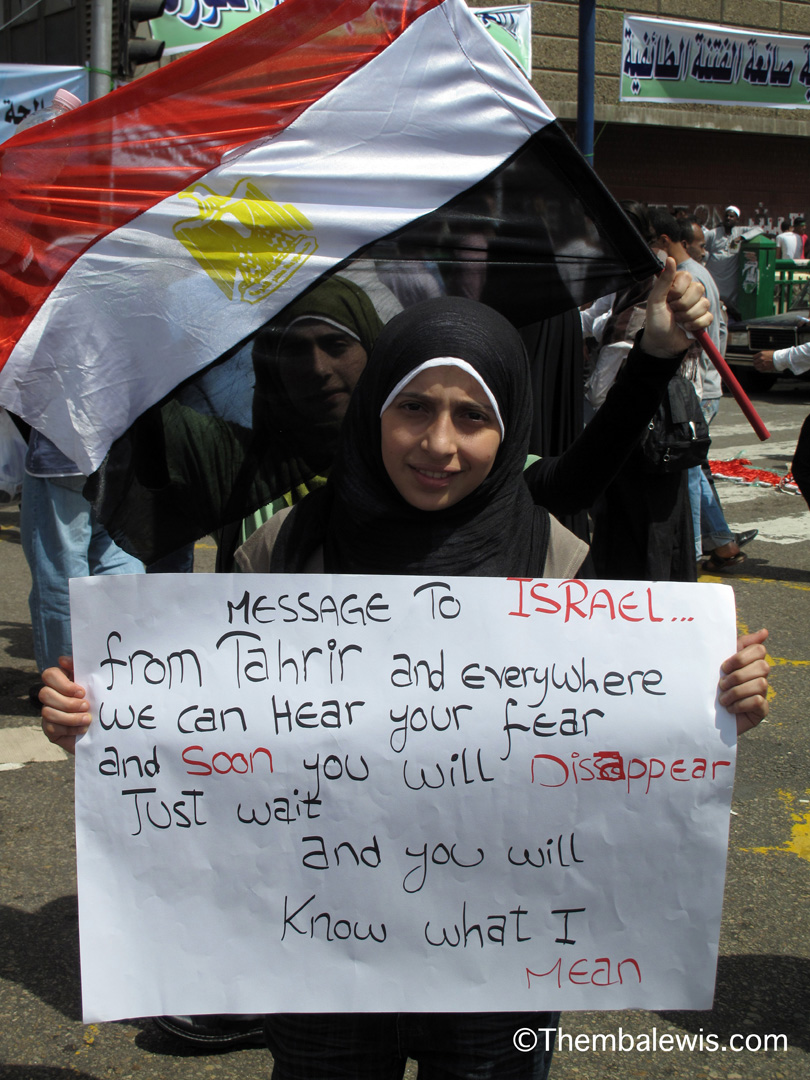 صانعة الفتنة الطائفية
MESSAGE To ISRAEL...
from Tahrir and everywhere
we can Hear your fear
and soon you will Disappear
Just wait
and you will
Know what I
Mean
©Thembalewis.com